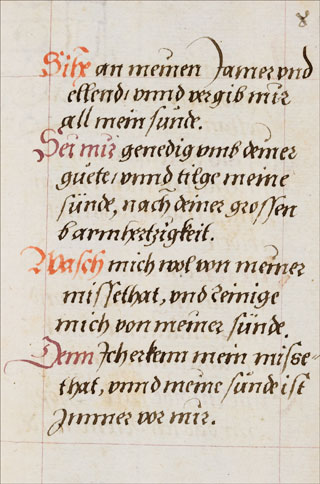 8
Sihe an meinen Jamer vnd
ellend, vnnd vergib mir
all mein sünde.
Sei mir genedig vmb deiner
guete, vnnd tilge meine
sünde, nach deiner grossen
barmhertzigkeit.
Wasch mich wol von meiner
missethat, vnd reinige
mich von meiner sünde.
Denn Ich erkenn mein misse-
that, vnnd meine sünde ist
Jmmer vor mir.